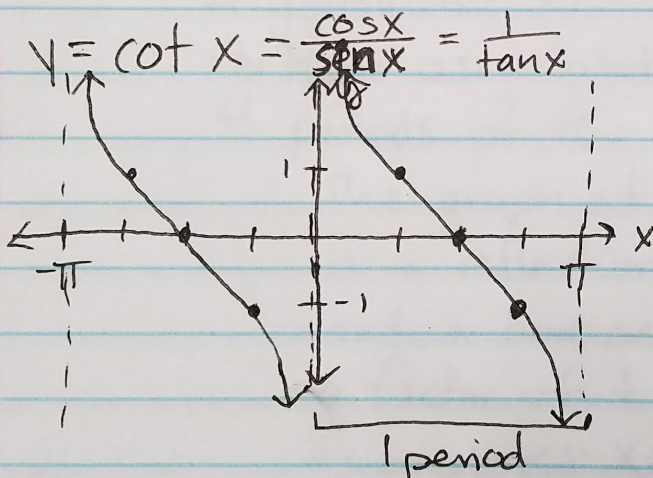 y = cot x = cosx/senx = 1/tanx
y
1
x
-π
π
-1
1 period